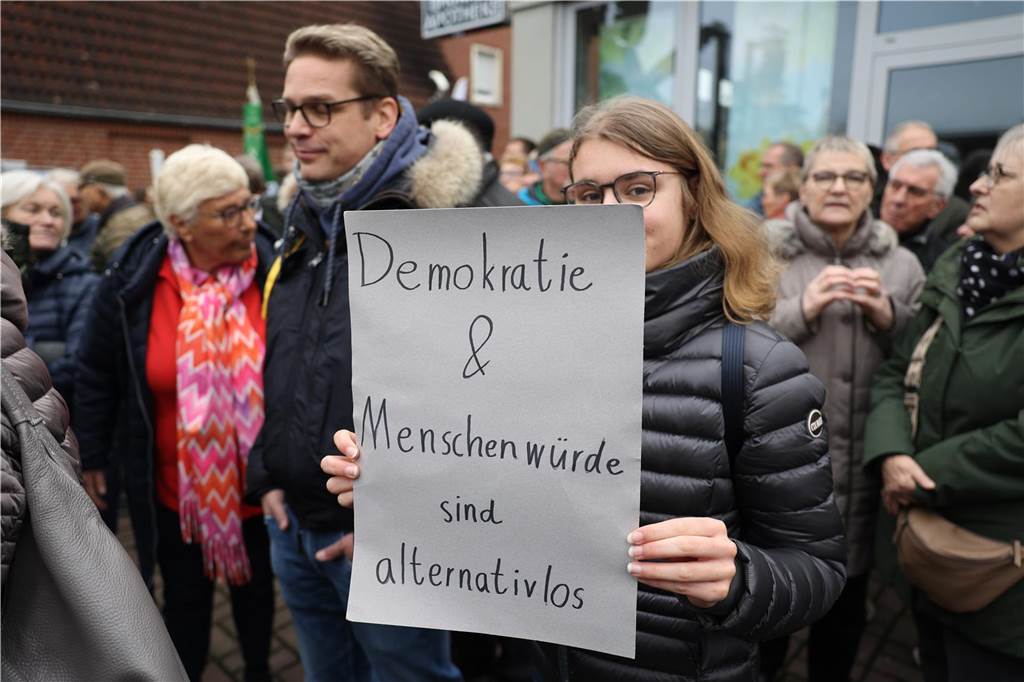 APOTHEKE
Demokratie
&
Menschenwürde
sind
alternativlos